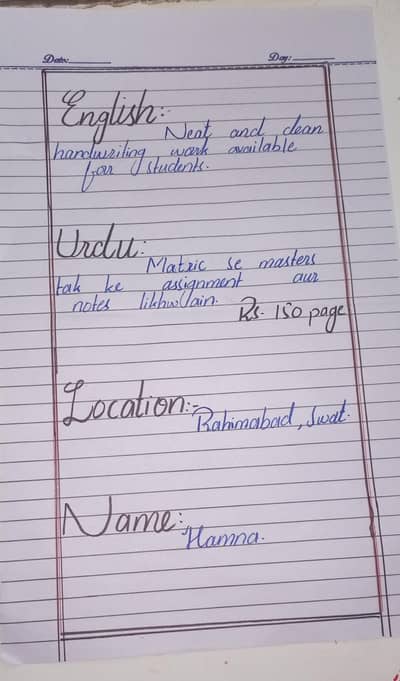 Date:________
Day:________
English:-
Neat and clean
handwriting work available
for students.
Urdu:
Matric se masters
tak ke assignment aur
notes likhwllain.
Rs. 150 page
Location:-
Rahimabad, Swat.
Name:
Hamna.